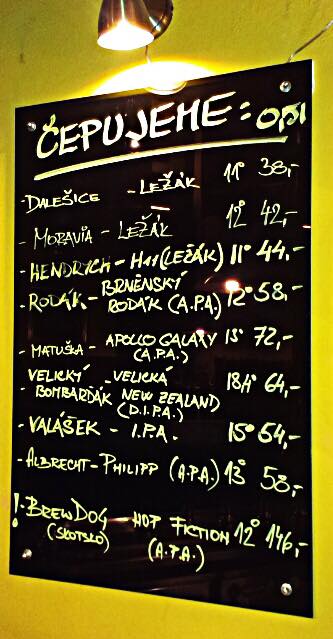 ČEPUJEME: 0,5l
- DALEŠICE - LEŽÁK 11° 38,-
- MORAVIA - LEŽÁK 12° 42,-
- HENDRYCH - H11 (LEŽÁK) 11° 44,-
- RODÁK - BRNĚNSKÝ RODÁK (A.P.A.) 12° 58,-
- MATUŠKA - APOLLO GALAXY (A.P.A.) 13° 72,-
VELICKÝ - VELICKÁ
- BOMBARĎÁK NEW ZEALAND (D.I.P.A.) 18,4° 64,-
- VALÁŠEK - I.P.A. 15° 54,-
- ALBRECHT - PHILIPP (A.P.A.) 13° 58,-
! - BREWDOG HOP FICTION 12° 146,-
(SKOTSKO) (A.P.A.)